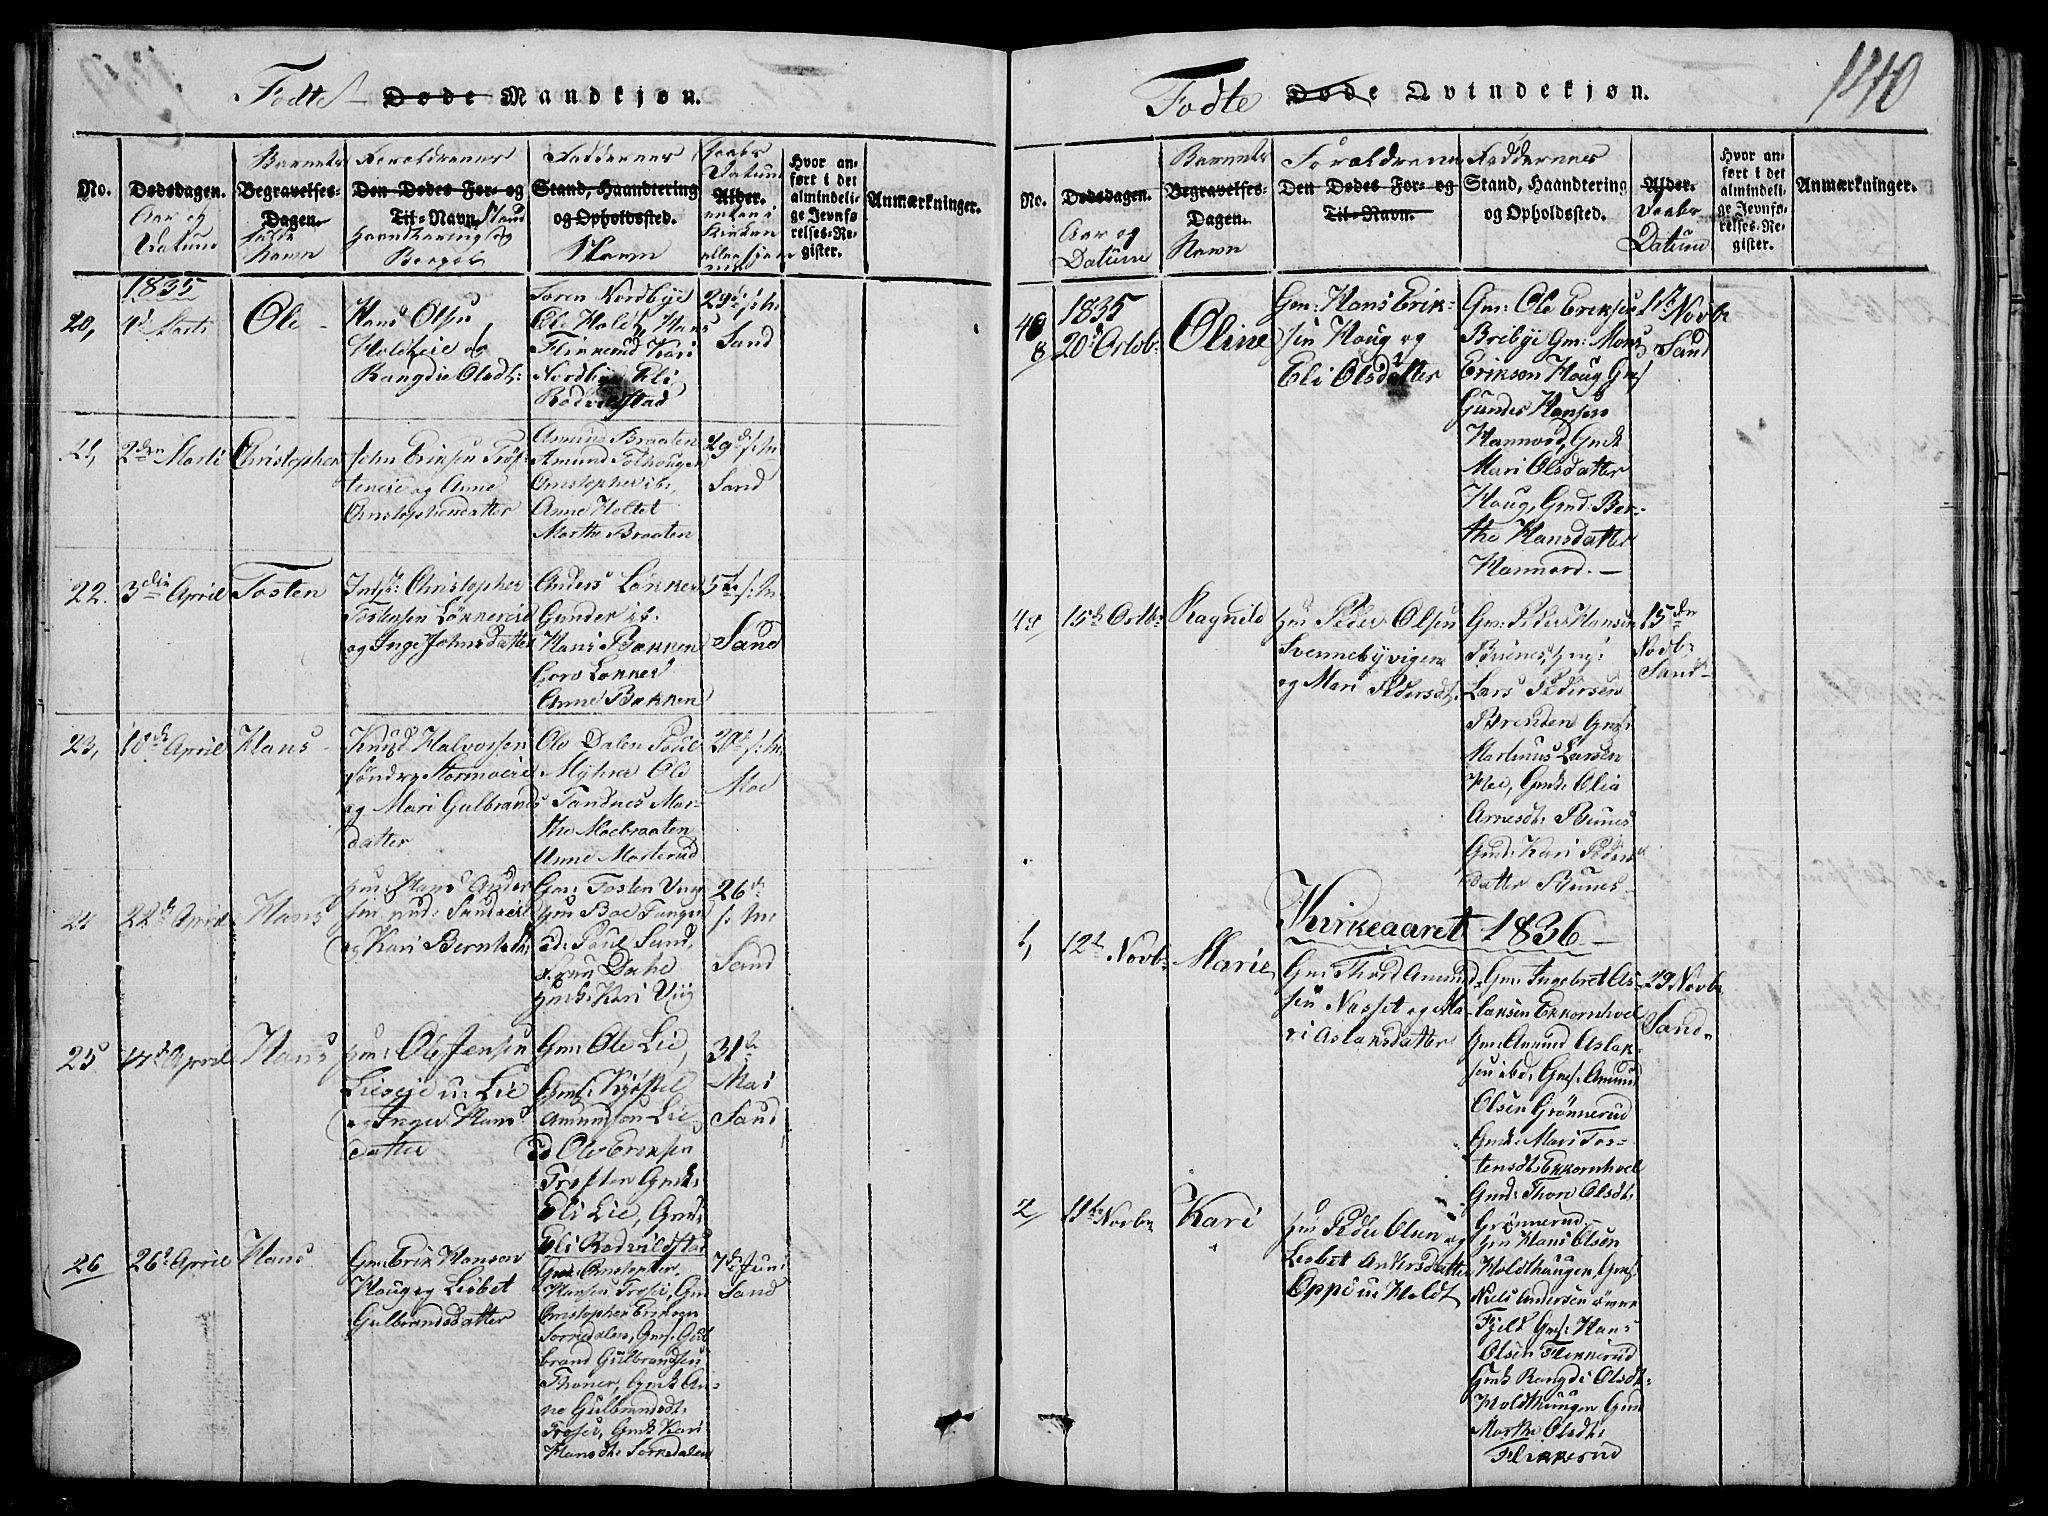 Fødte Døde Mandkjøn.
No.
Dødsdagen.
Aar og
Datum
Barnets
Begravelses-
Dagen.
fulde
Navn
Foreldrenes
Den Dødes For- og
Til-Navn. Stand
Haandtering og
Faddernes
Stand, Haandtering
og Opholdssted.
Navn
Daabs
Datum
Alder.
enten i
Kirken
eller hjem
Hvor an-
ført i det
almindeli-
ge Jevnfø
relses-Re-
gister.
Anmærkninger.
20,
1835
Marti
Ole
Hans Olsen
Holdteie og
Rangdie Olsdt:
Søren Nordbye
Ole Holdt, Hans
Flikkerud Kari
Nordbye Eli
Rodvildstad
29d s: M
Sand
21,
2den Marti
Christopher
John Eriksen Trøf-
teneie og Anne
Christophersdatter
Amund Braaten
Amund Tothougen
Christopher ib:
Anne Holtet
Marthe Braaten
29d s: M
Sand
22.
3die April
Tosten
Christopher
Tostensen Lønnereie
og Inge Johnsdatter
Anders Lønner
Gunder ib:
Hans Bakken
Goro Lønner
Anne Bakken
5te s: M
Sand
23,
10d April
Hans
Knud Halvorsen
søndre Stormoeie
og Mari Gulbrands
datter
Ole Dalen Poul
Myhre Ole
Sandnes Mar-
the Moebraaten
Anne Morterud
20d s: M
Moe
24
22d April
Hans
Hans Ander
sen und: Sandeie
og Kari Berntsdt:
Gm: Tosten Viig
Boe Fangen
d: Poul Sand,
Kari Viig
26d
s: M
Sand
25
14d April
Hans
Hm: Ole Jensen
Lieeie u: Lie
og Inger Hans
datter
Gm: Ole Lie,
Gms: Kjøstel
Amundsen Lie
d Ole Eriksen
Trøften Gmk:
Eli Lie, Gmd:
Eli Rodvildstad
31d
Mai
Sand
26
26d April
Hans
Gm: Erik Hansen
Houg og Lisbet
Gulbrandsdatter
Gm: Christopher
Hansen Trøfei, Gm
Christopher Eriksen
Sorkedalen, Gms: Gul
brand Gulbrandsen
Thoner, Gmk An-
ne Gulbrandsdt:
Trøfei, Gmk Kari
Hansdt: Sorkedalen
7d Juni
Sand
Fødte Døde Qvindekjøn.
140
No.
Dødsdagen.
Aar og
Datum
Barnets
Begravelses-
Dagen.
Navn
Forældrene
Den Dødes For- og
Til-Navn.
Faddernes
Stand, Haandtering
og Opholdssted.
Alder.
Daabs
Datum
Hvor an-
ført i det
almindeli-
ge Jevnfø-
relses-Re-
gister.
Anmærkninger.
1835
20d Octob:
Oline
Gm: Hans Erik-
sen Houg og
Eli Olsdatter
Gm: Ole Eriksen
Brebye Gm: Mons
Eriksen Houg Gms
Gunder Hansen
Hannord, Gmk
Mari Olsdatter
Houg, Gmd: Ber-
the Hansdatter
Hannord. —
1ste Novb:
Sand
15d Octb:
Ragnild
Hm Peder Olsen
Svennebyvigen
og Mari Pedersdt:
Gm: Peder Hansen
Bunes,
Lars Pedersen
Brenden Gms:
Martinus Larsen
Moe, Gmk: Olia
Arnesdt: Bunes
Gmd: Kari Peders
datter Bunes —
15den
Novb:
Sand
Kirkeaaret 1836 —
1,
12d Novb:
Marie
Gm: Thord Amund
sen Nasset og Ma-
ri Aslaksdatter
Gm: Ingebret As-
laksen Ekkornhoel
Gm: Amund Aslak-
sen ibd: Gms: Amund
Olsen Grønnerud
Gmk: Mari Tos-
tensdt: Ekkornhoel
Gmd: Thore Olsdt:
Grønnerud
29 Novb:
Sand
2/
11te Novb:
Kari
Hm Peder Olsen og
Lisbet Andersdatter
Oppi u: Holdt
Hm Hans Olsen
Holdthaugen, Gms:
Niels Andersen øvre
Fjeld Gms: Hans
Olsen Flikkerud
Gmk Rangdi Olsdt:
Holdthaugen Gmd
Marthe Olsdt:
Flikkerud